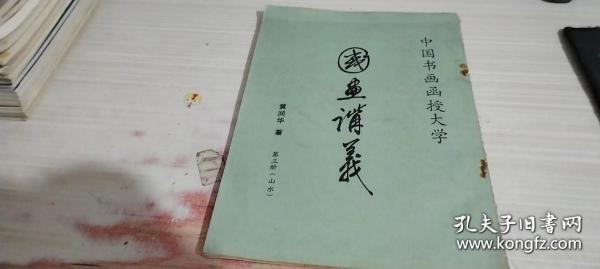 中国书画函授大学
国画讲义
黄润华 著
第三册（山水）
孔夫子旧书网
www.kongfz.com